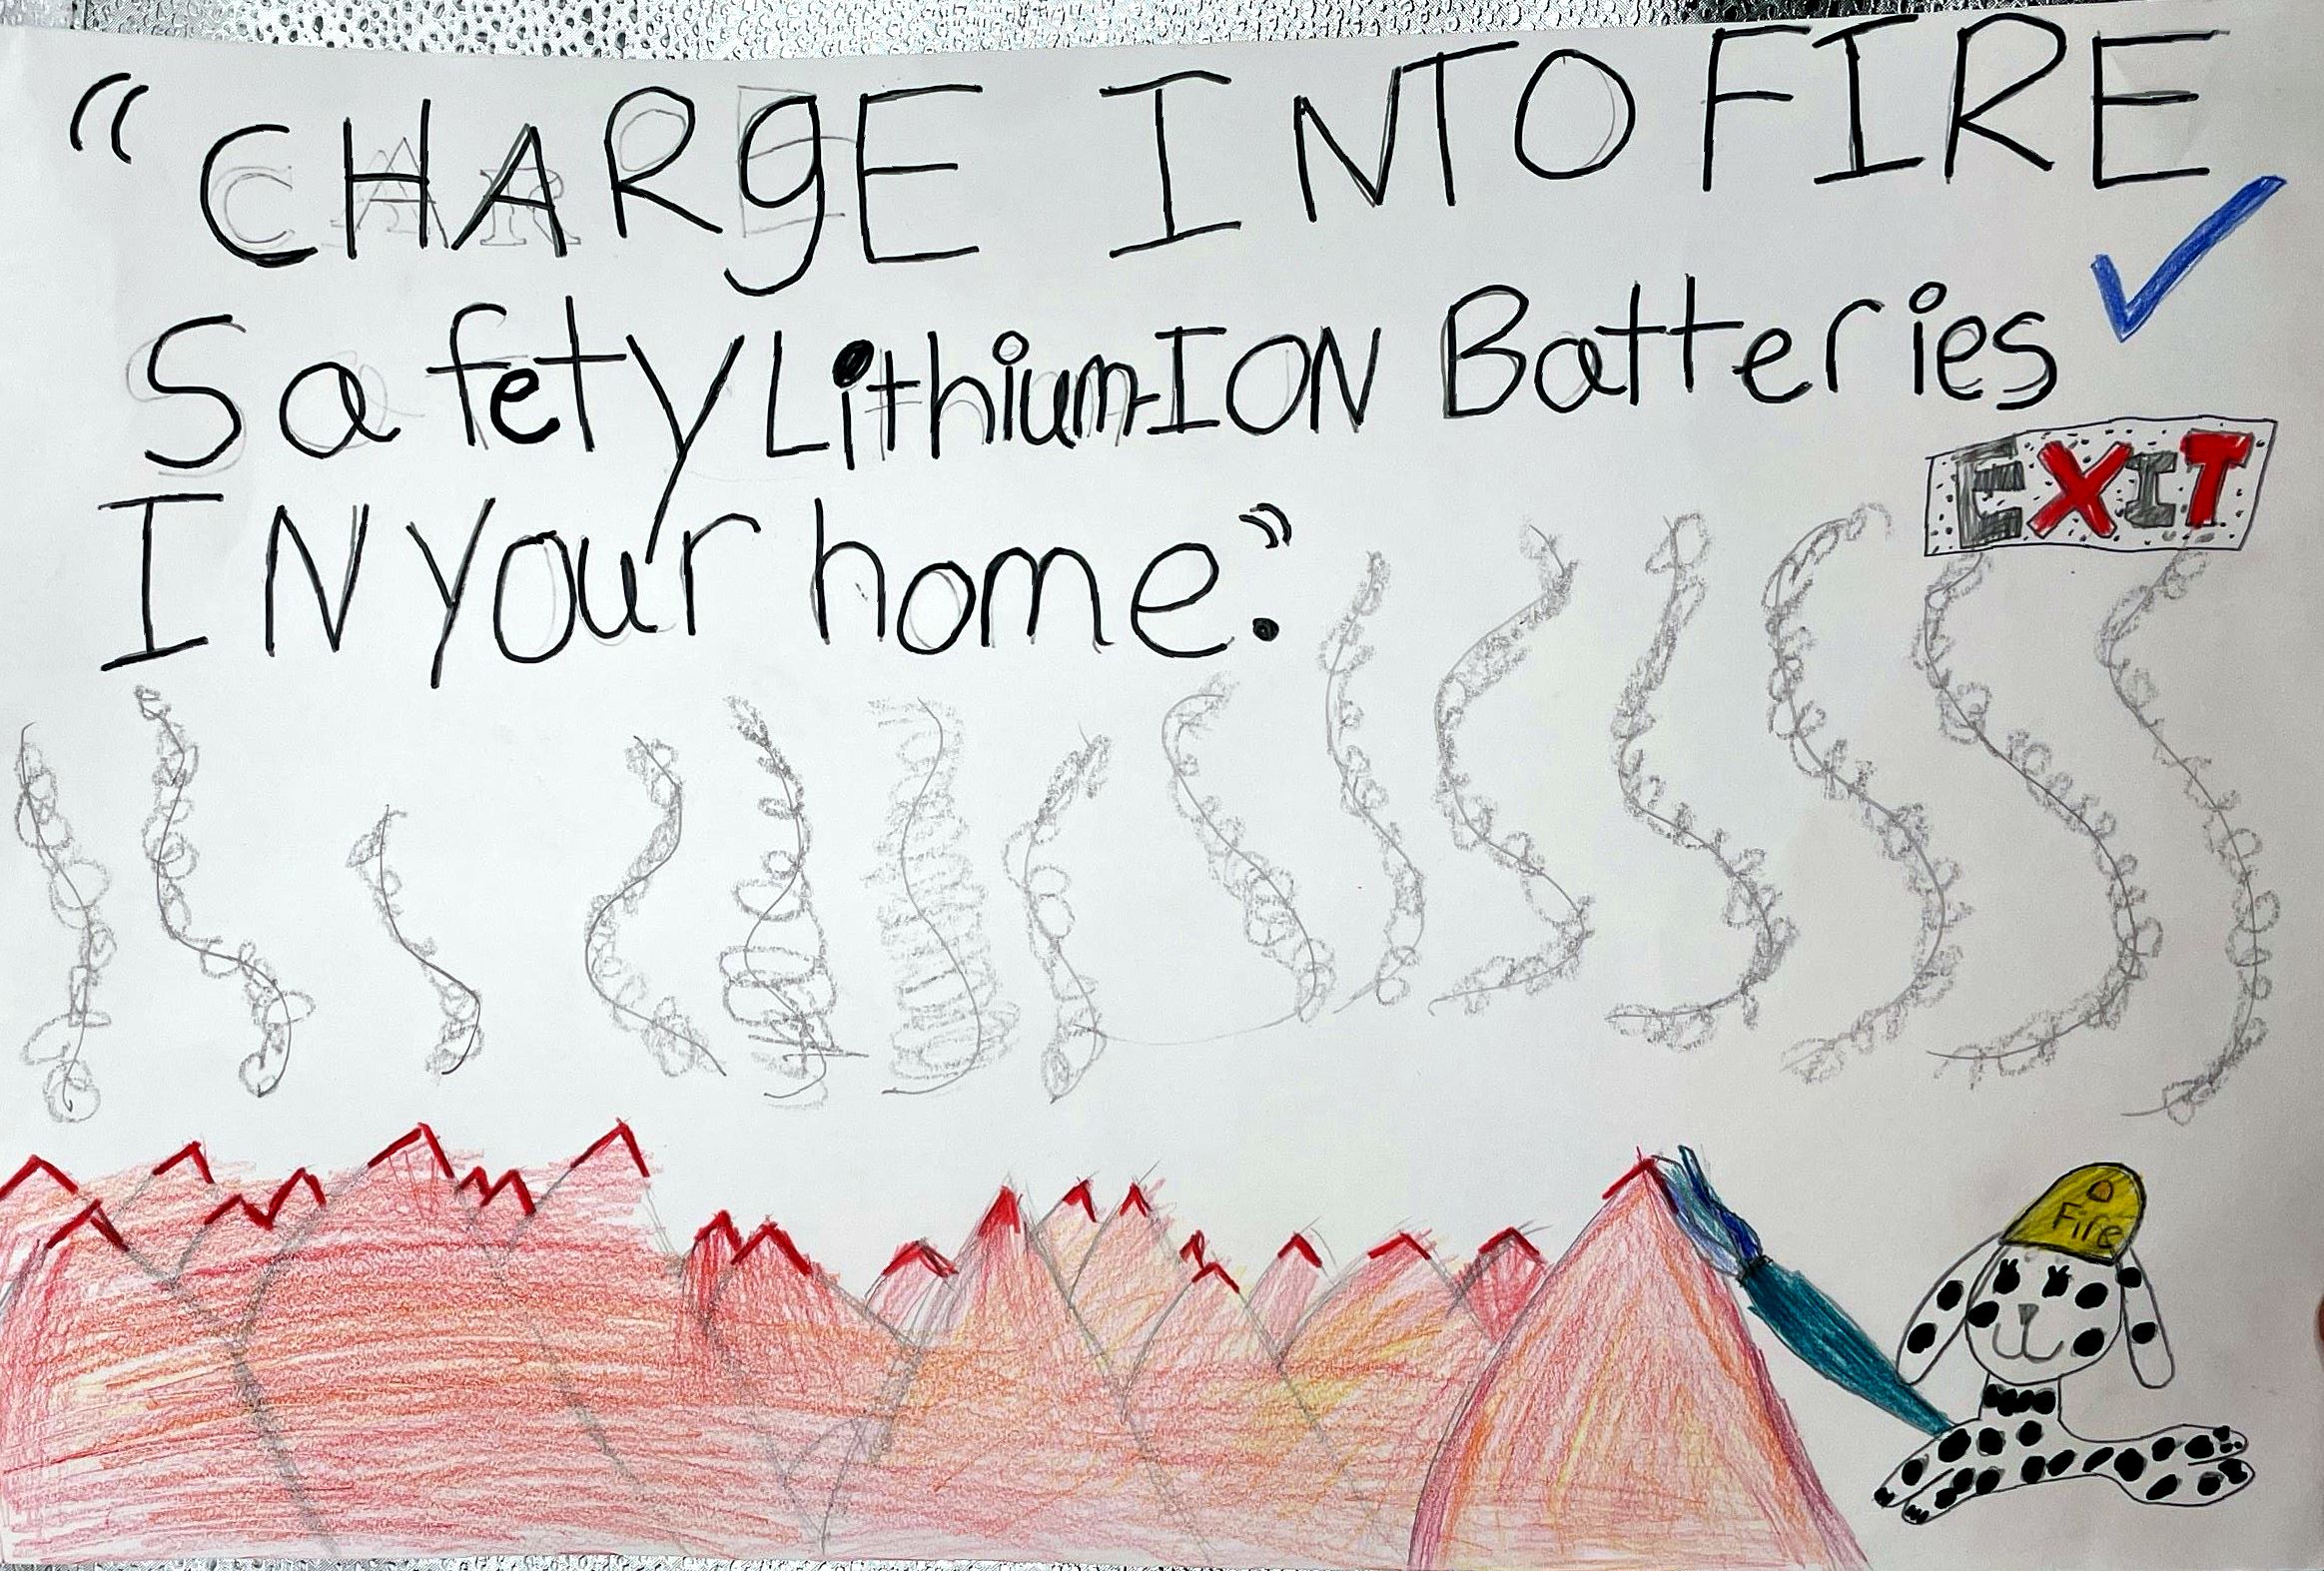 "CHARgE INTO FIRE
Safety Lithium-ION Batteries
IN your home."
EXIT
Fire